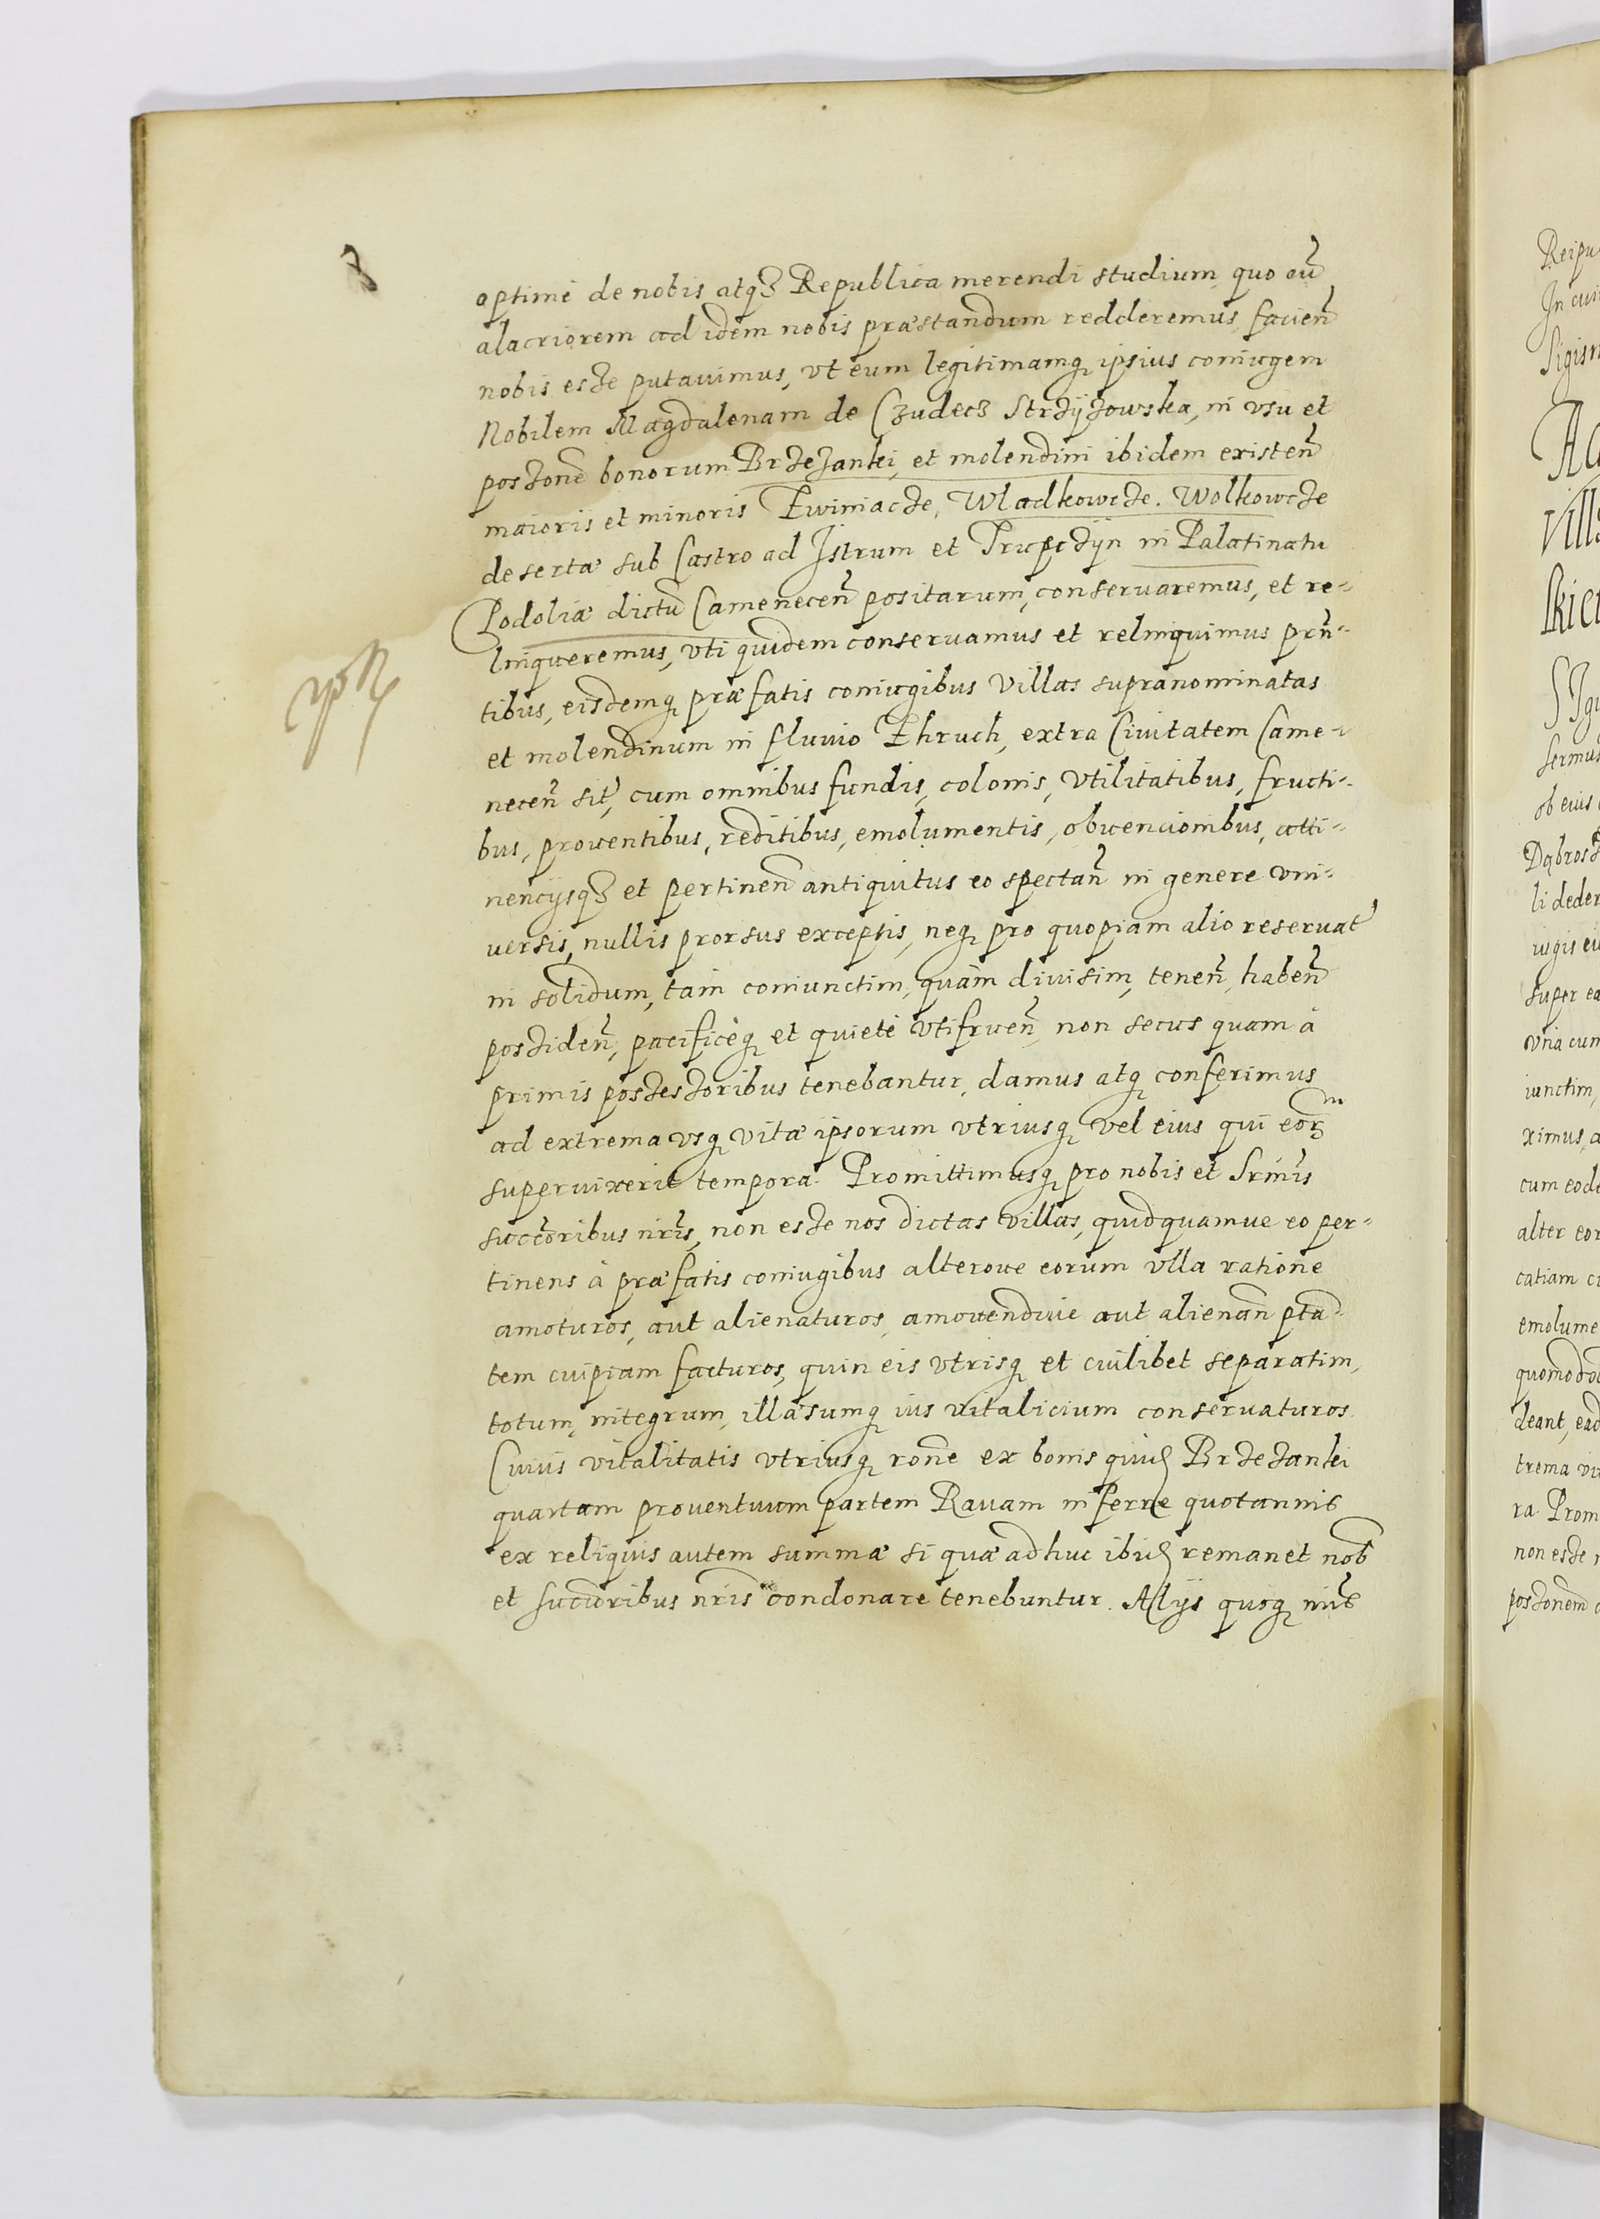 8
optimè de nobis atq3 Republica merendi studium, quo eũ
alacriorem ad idem nobis præstandum redderemus, facien̄
nobis esse putauimus, vt eum legitimamq3 ipsius coniugem
Nobilem Magdalenam de Czudecz Strzyzowska, in vsu et
possione bonorum Brzezanki, et molendini ibidem existen̄
maioris et minoris Zwiniacze, Wladkowcze, Wolkowcze
desertæ sub Castro ad Istrum et in Palatinatu
Podoliæ districtu Camenecen̄ positarum, conseruaremus, et re-
linqueremus, vti quidem conseruamus et relinquimus prn̄-
tibus, eisdemq3 præfatis coniugibus Villas supranominatas
et molendinum in fluuio Zhruch, extra Ciuitatem Came-
necen̄ sit̃, cum omnibus fundis, colonis, vtilitatibus, fructi-
bus, prouentibus, reditibus, emolumentis, obuencionibus, atti-
nencijsq3 et pertinen̄ antiquitus eo spectan̄ in genere vni-
uersis, nullis prorsus exceptis, neq3 pro quopiam alio reseruat̃
in solidum, tam coniunctim, quàm diuisim, tenen̄, haben̄
possiden̄, pacificèq3 et quietè vtifruen̄, non secus quam à
primis possessoribus tenebantur, damus atq3 conferimus
ad extrema vsq3 vitæ ipsorum vtriusq3 vel eius qui eor3
superuixerit tempora. Promittimusq3 pro nobis et Srmis
succoribus nris, non esse nos dictas villas, quidquamue eo per-
tinens à præfatis coniugibus alteroue eorum vlla ratione
amoturos, aut alienaturos, amouendiue aut alienan̄ ptã-
tem cuipiam facturos, quin eis vtrisq3 et cuilibet separatim,
totum, integrum, illæsumq3 ius vitalicium conseruaturos.
Cuius vitalitatis vtriusq3 rone ex bonis quid Brzezanki
quartam prouentuum partem Rauam inferre quotannis
ex reliquis autem summæ si quæ adhuc ibid remanet nob
et succoribus nris condonare tenebuntur. Alijs quoq3